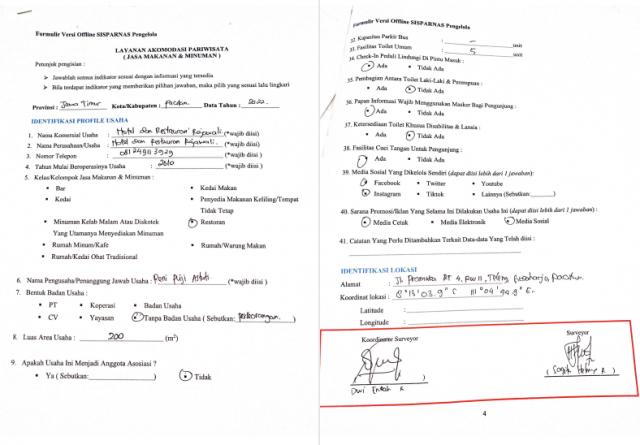 Formulir Versi Offline SISPARNAS Pengelola
LAYANAN AKOMODASI PARIWISATA
( JASA MAKANAN & MINUMAN )
Petunjuk pengisian :
➢ Jawablah semua indikator sesuai dengan informasi yang tersedia
➢ Bila terdapat indikator yang memberikan pilihan jawaban, maka pilih yang sesuai lalu lingkari
Provinsi : Jawa Timur Kota/Kabupaten : Pacitan Data Tahun : 2022
IDENTIFIKASI PROFILE USAHA
1. Nama Komersial Usaha : Hotel dan Restauran Rajawali (*wajib diisi)
2. Nama Perusahaan/Usaha : Hotel dan Restauran Rajawali. (*wajib diisi)
3. Nomor Telepon : (*wajib diisi)
4. Tahun Mulai Beroperasinya Usaha : 2010 (*wajib diisi)
5. Kelas/Kelompok Jasa Makanan & Minuman :
• Bar • Kedai Makan
• Kedai • Penyedia Makanan Keliling/Tempat
Tidak Tetap
• Minuman Kelab Malam Atau Diskotek • Restoran
Yang Utamanya Menyediakan Minuman
• Rumah Minum/Kafe • Rumah/Warung Makan
• Rumah/Kedai Obat Tradisional
6. Nama Pengusaha/Penanggung Jawab Usaha : Puji Astuti (*wajib diisi )
7. Bentuk Badan Usaha :
• PT • Koperasi • Badan Usaha
• CV • Yayasan • Tanpa Badan Usaha ( Sebutkan: Perseorangan. )
8. Luas Area Usaha : 200 (m²)
9. Apakah Usaha Ini Menjadi Anggota Asosiasi ?
• Ya ( Sebutkan: ) • Tidak
Formulir Versi Offline SISPARNAS Pengelola
32. Kapasitas Parkir Bus : – unit
33. Fasilitas Toilet Umum : 5 unit
34. Check-In Peduli Lindungi Di Pintu Masuk :
• Ada • Tidak Ada
35. Pembagian Antara Toilet Laki-Laki & Perempuan :
• Ada • Tidak Ada
36. Papan Informasi Wajib Menggunakan Masker Bagi Pengunjung :
• Ada • Tidak Ada
37. Ketersediaan Toilet Khusus Disabilitas & Lansia :
• Ada • Tidak Ada
38. Fasilitas Cuci Tangan Untuk Pengunjung :
• Ada • Tidak Ada
39. Media Sosial Yang Dikelola Sendiri (dapat diisi lebih dari 1 jawaban):
• Facebook • Twitter • Youtube
• Instagram • Tiktok • Lainnya (Sebutkan: )
40. Sarana Promosi/Iklan Yang Selama Ini Dilakukan Usaha Ini (dapat diisi lebih dari 1 jawaban) :
• Media Cetak • Media Elektronik • Media Sosial
41. Catatan Yang Perlu Ditambahkan Terkait Data-data Yang Telah diisi :
IDENTIFIKASI LOKASI
Alamat : Jl. Pramuka RT 4, RW II, Pacitan.
Koordinat lokasi :
Latitude :
Longitude :
Koordinator Surveyor
Surveyor
Dwi Endah R )
( )
4